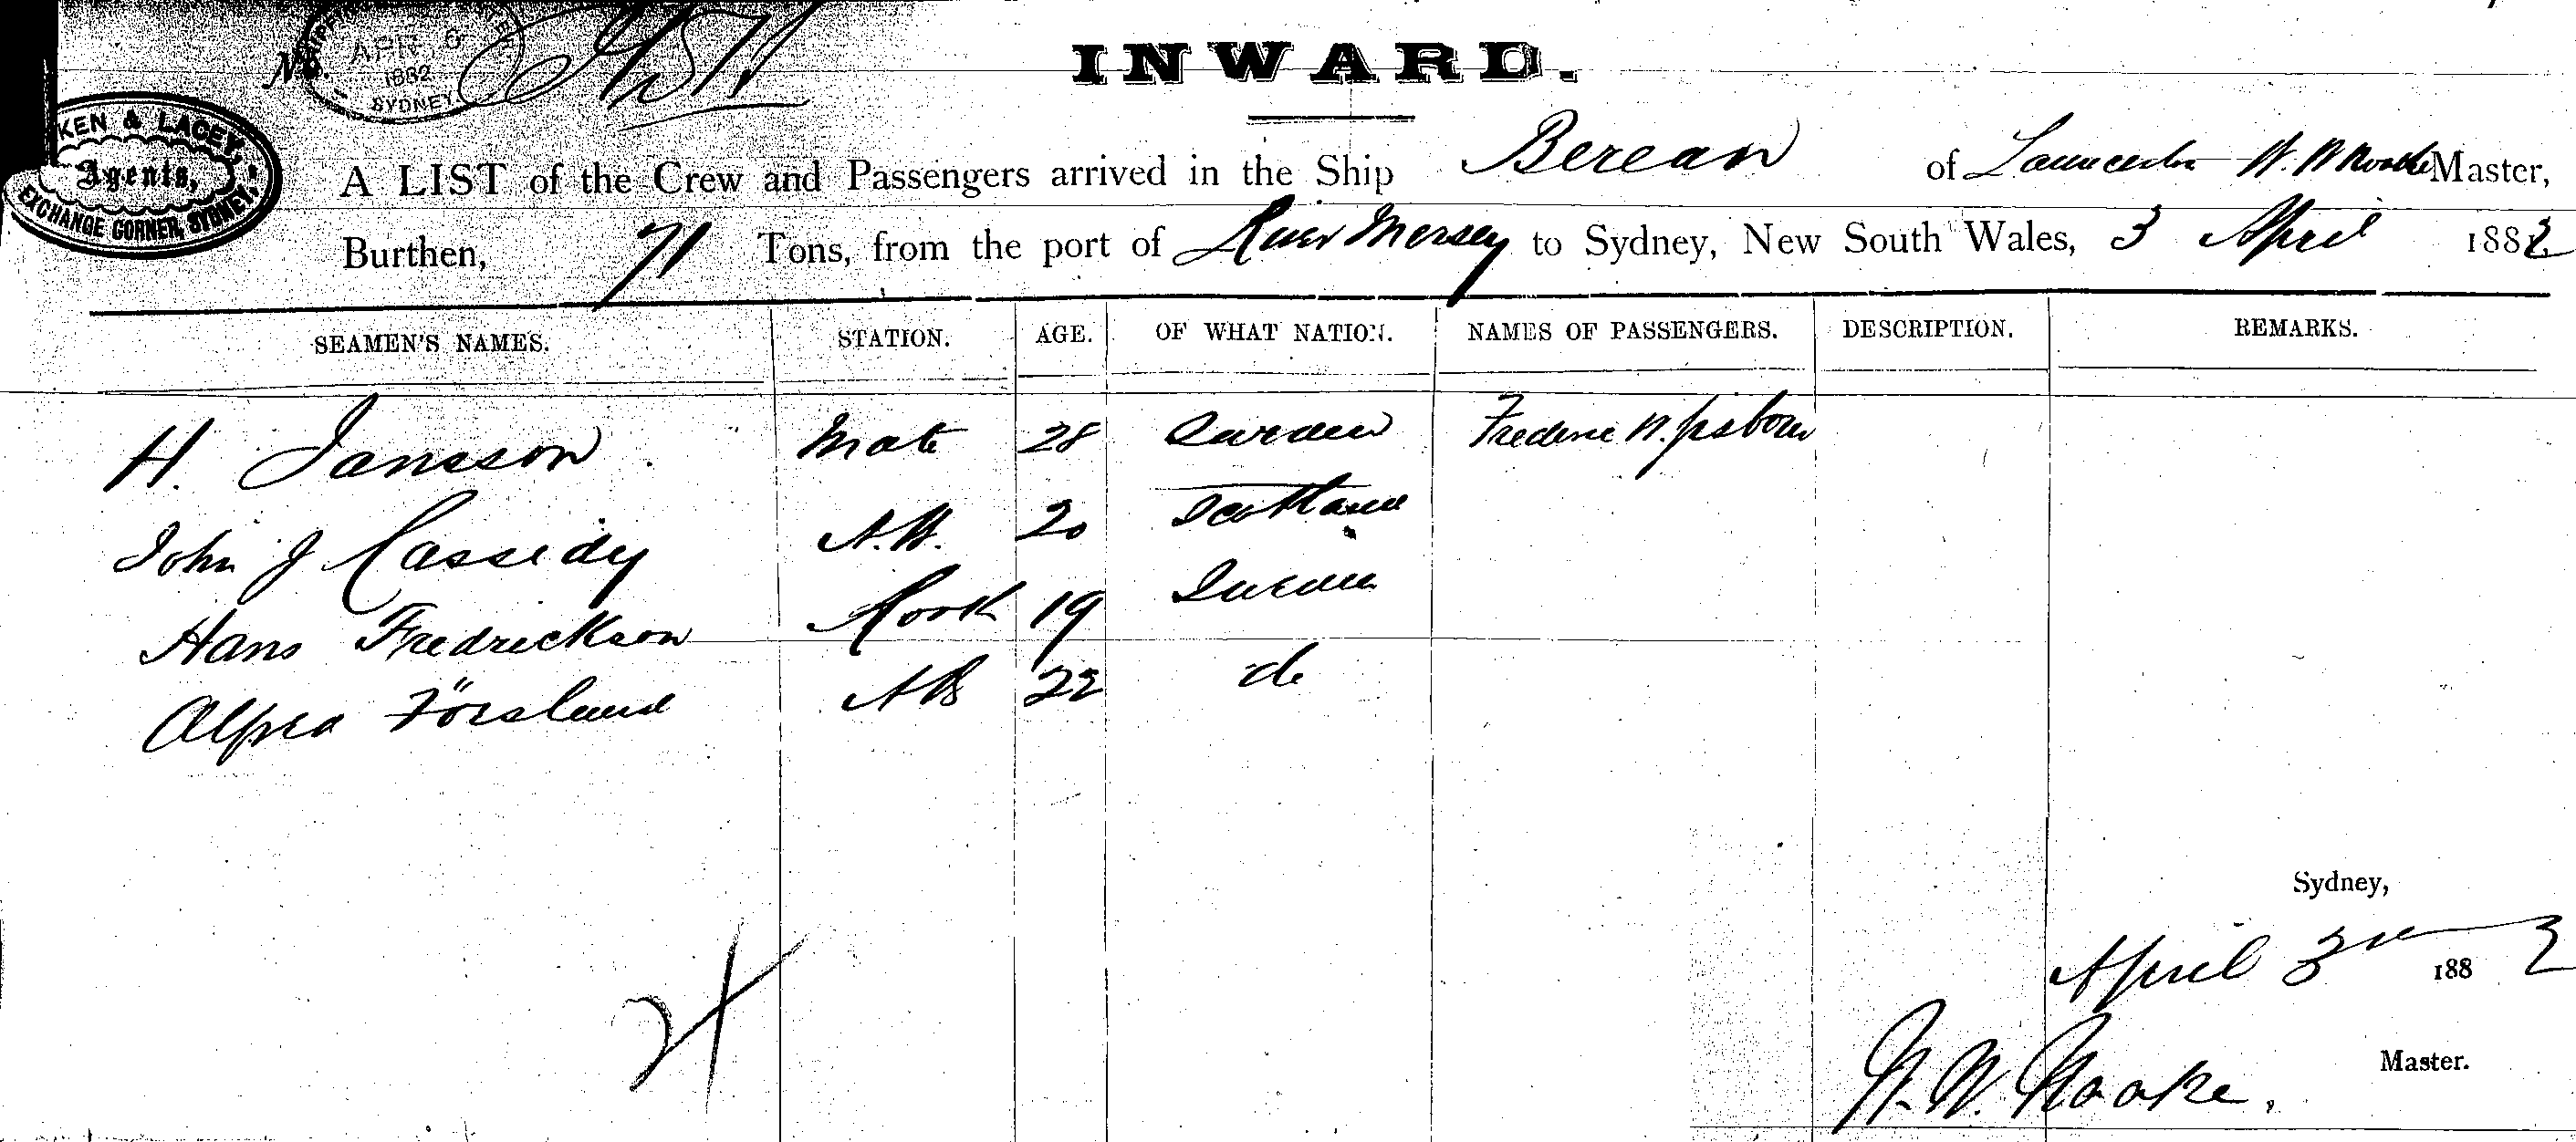 No.
APR
1882
SYDNEY
INWARD.
KEN & LACEY,
Agents,
EXCHANGE CORNER, SYDNEY,
A LIST of the Crew and Passengers arrived in the Ship Berean of Launceston Master,
Burthen, 71 Tons, from the port of River Mersey to Sydney, New South Wales, 3 April 1882
SEAMEN'S NAMES. STATION. AGE. OF WHAT NATION. NAMES OF PASSENGERS. DESCRIPTION. REMARKS.
H. Jansson Mate 28 Sweden Frederic
John J Cassedy A.B. 20 Scotland
Hans Fredrickson Cook 19 Sweden
Alfred Försland AB 22 do
Sydney,
April 3rd 1882
Master.